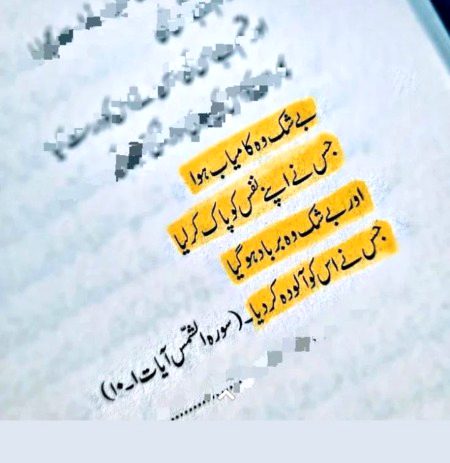 بے شک وہ کامیاب ہوا
جس نے اپنے نفس کو پاک کر لیا
اور بے شک وہ برباد ہو گیا
جس نے اس کو آلودہ کر دیا۔ (سورہ الشمّس آیات ۱۔۱۰)